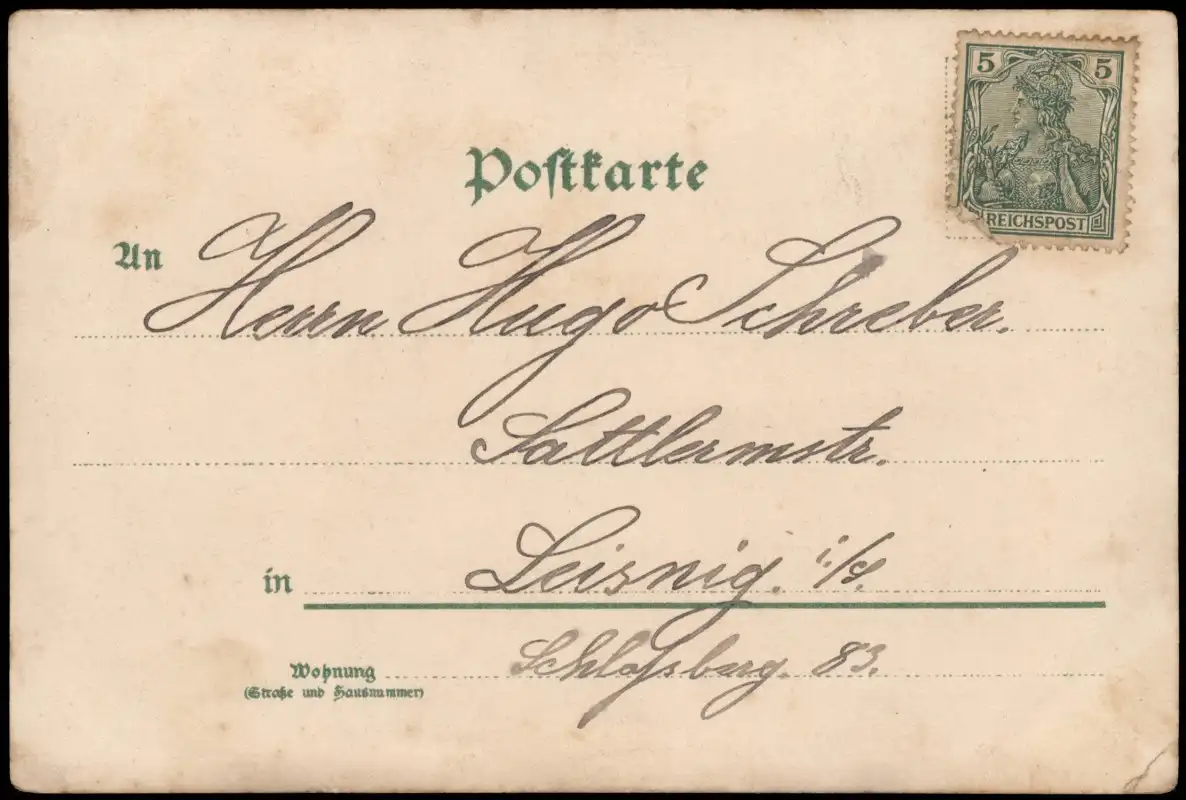 5 5
REICHSPOST
Postkarte
An Herrn Hugo Schreber.
Sattlermstr.
in Leisnig. i/S.
Wohnung Schloßberg. 83.
(Straße und Hausnummer)